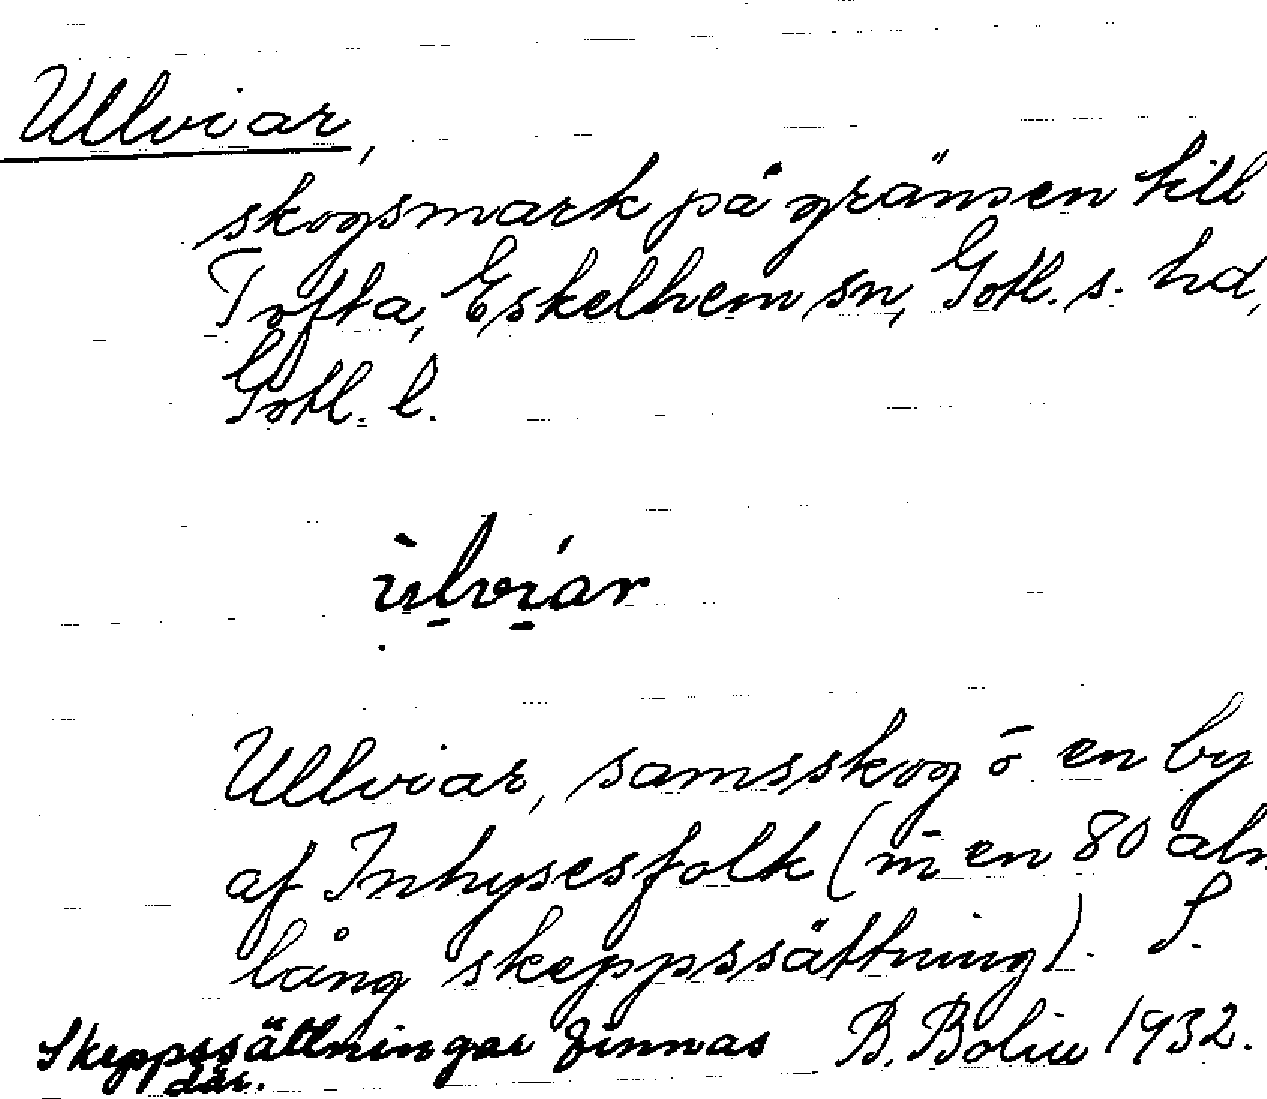 Ullviar,
skogsmark på gränsen till
Tofta, Eskelhem sn, Gotl. s. hd,
Gotl. l.
ùlvíar
Ullviar, samsskog o en by
af Inhysesfolk (m en 80 aln
lång skeppssättning). S.
Skeppssättningar finnas B. Bolin 1932.
där.